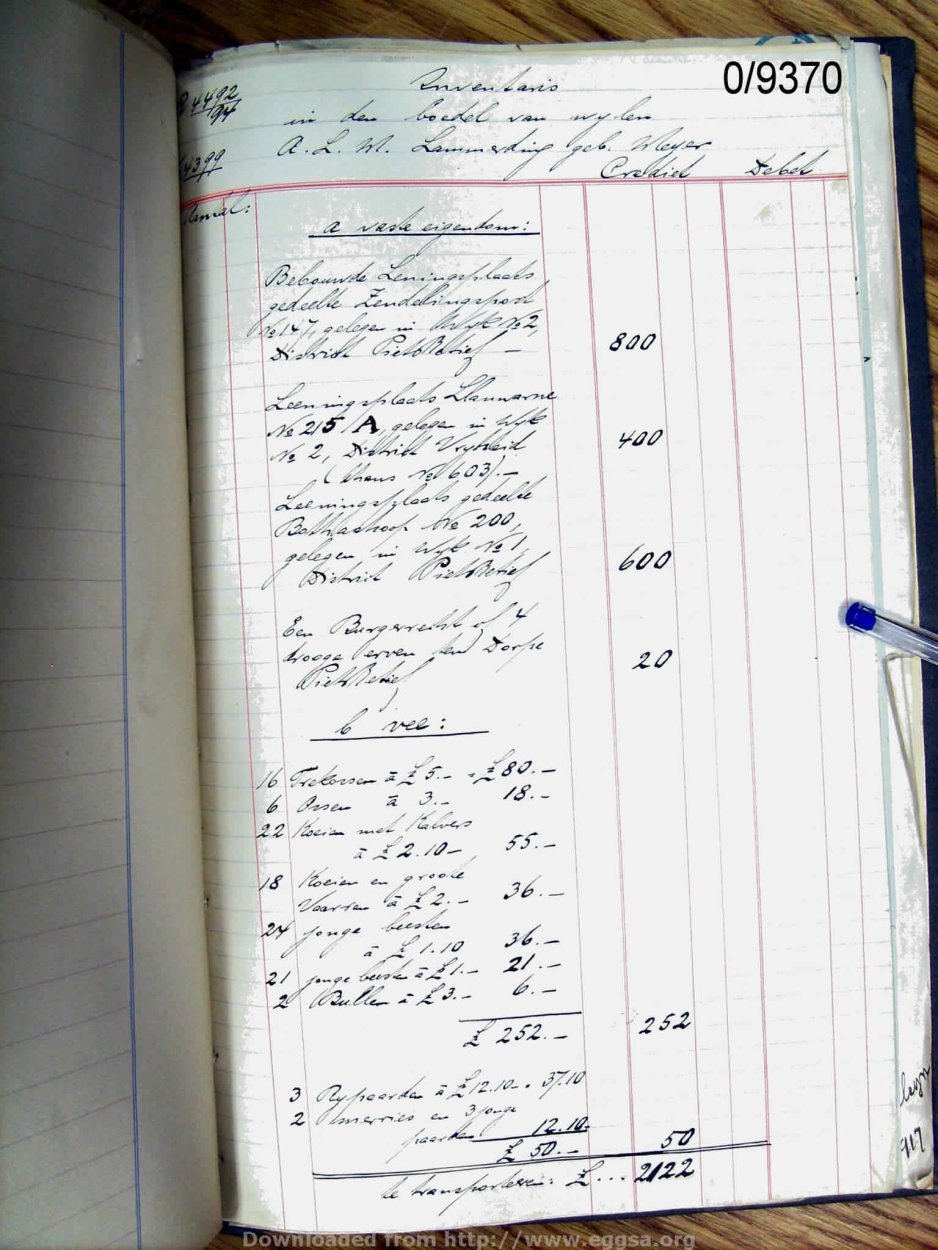 0/9370
4492
/94
4399
Inventaris
in den boedel van wylen
A. L. M. Lammerding geb. Meyer
Crediet Debet
Aantal:
a vaste eigendom:
Bebouwde Leeningsplaats
gedeelte Zendelingspost
No 147, gelegen in Wyk No 2,
District Piet Retief – 800
Leeningsplaats Llanwarne
No 215 A, gelegen in Wyk
No 2, District Vryheid 400
(thans No 603).–
Leeningsplaats gedeelte
Bothashoop No 200,
gelegen in Wyk No 1,
District Piet Retief 600
Een Burgerrecht of 4
drooge erven Dorpe
Piet Retief 20
b vee:
16 Trekossen à £ 5.– £ 80.–
6 Ossen à 3.– 18.–
22 Koeien met Kalvers
à £ 2.10– 55.–
18 Koeien en groote
Vaarsen à £ 2.– 36.–
24 jonge beesten
à £ 1.10 36.–
21 jonge beesten à £ 1.– 21.–
2 Bullen à £ 3.– 6.–
£ 252.– 252
3 Rypaarden à £ 12.10– 37.10
2 merries en 3 jonge
paarden 12.10.
£ 50.– 50
te transporteren: £ ... 2122
917
Downloaded from http://www.eggsa.org